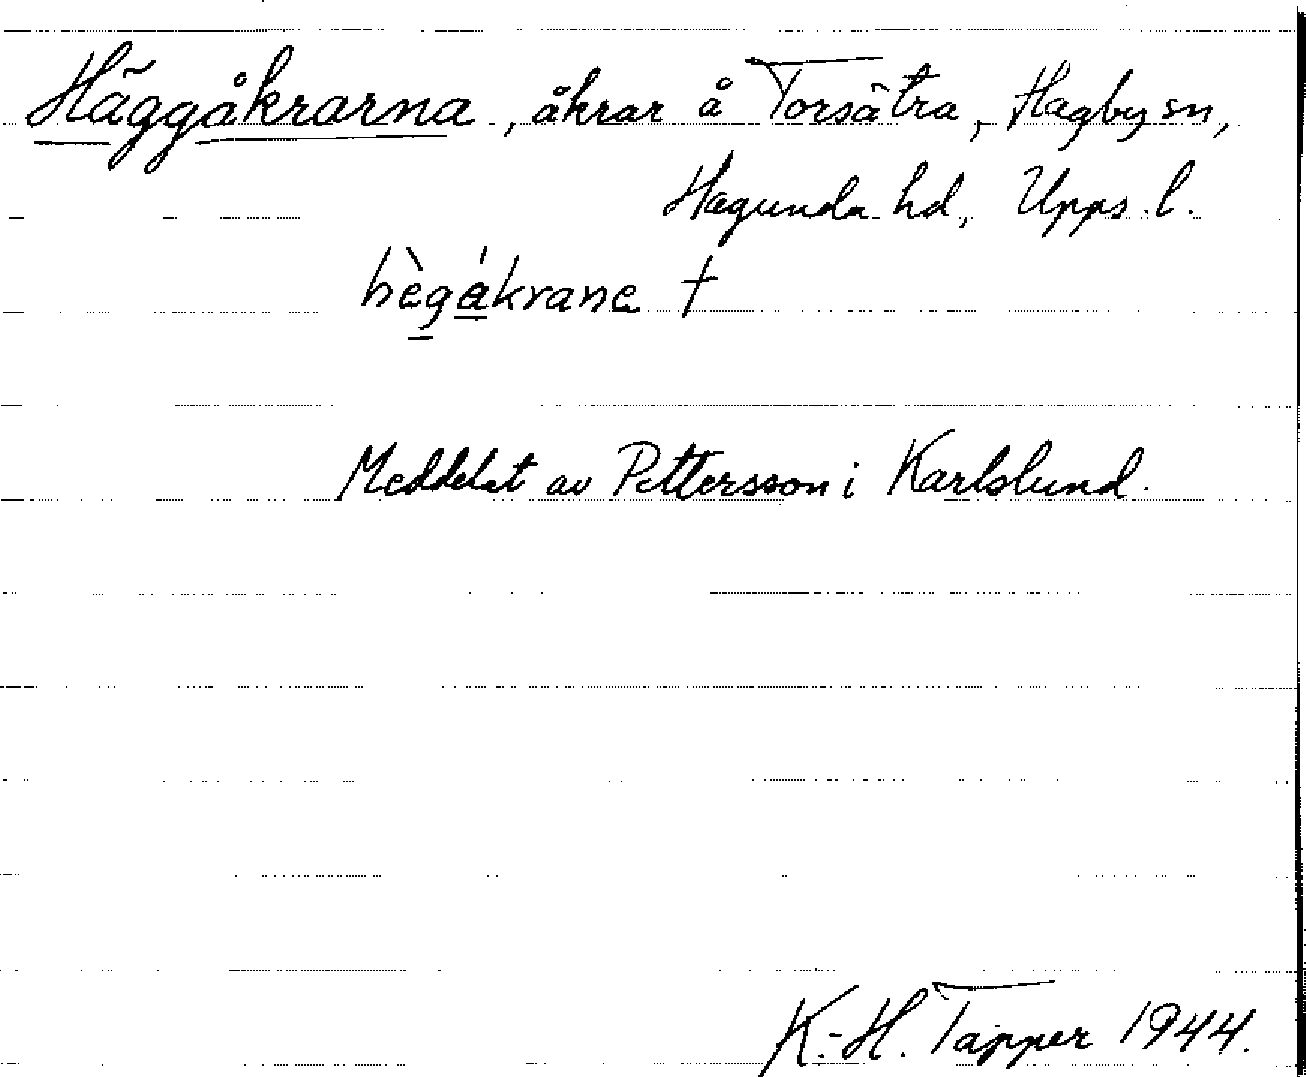 Häggåkrarna, åkrar å Torsätra, Hagby sn,
Hagunda hd, Upps. l.
hègákrane †
Meddelat av Pettersson i Karlslund.
K.-H. Tapper 1944.